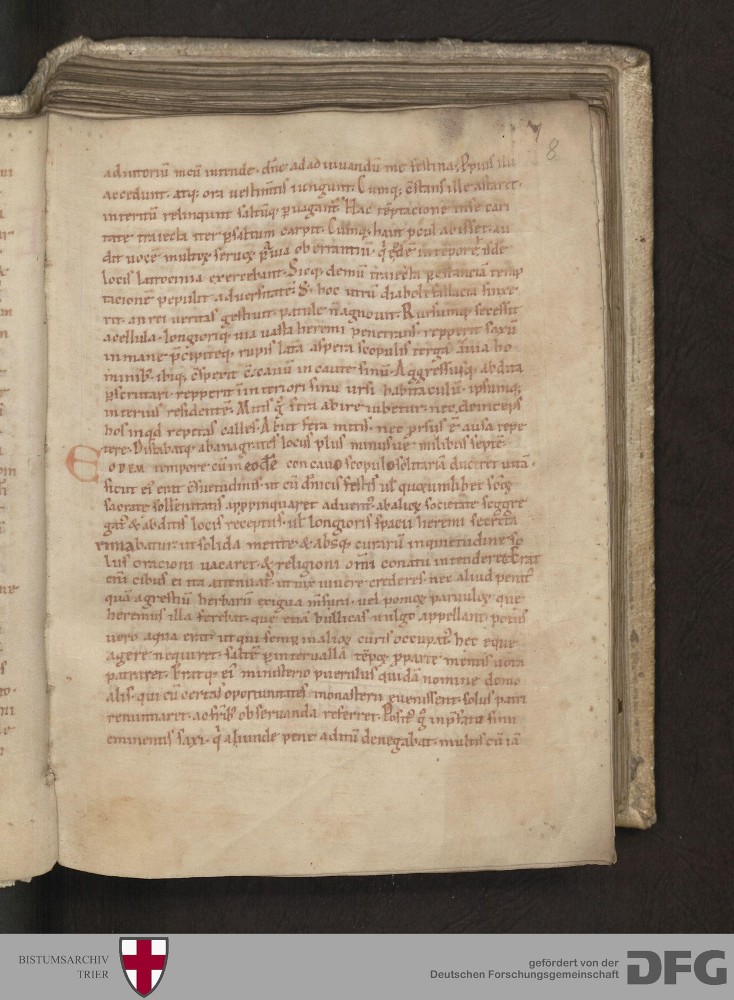 8
adiutoriū meū intende · dn̄e ad adiuuandū me festina; Ppius illi
accedunt · atq; ora uestim̄tis iungunt. Cumq; c̄stans ille astaret ·
interitū relinqunt saltūq; ꝑuagant᷑. Hac tēptacione
tate traiecta iter ꝑ saltum carpit. Cumq; haut ꝓcul abisset · au
dit uocē multoꝝ seruoꝝ oberrantiū ·
locis latrocinia exercebant · Sicq; demū traiecta ꝑ c̄stanciā temp
tacionē pepulit aduersitatē. S; hoc utrū diaboli fallacia finxe
rit · an rei ueritas gessit · patule n̄ agnouit. Rursumq; secessit
a cellula · longioriq; uia uasta heremi penetrans · repperit saxū
inmane p̄cipiteq; rupis lat᷑a aspera scopulis terga auia ho
minib; ibiq; c̄sperit incaute sinū · Aggressusq; abdita
ꝑscrutari · repperit in interiori sinu ursi habitaculū · ipsumq;
interius residentē. Mitis g̊ fera abire iubetur · nec deinceps
hos inqd repetas calles. Abiit fera mitis · nec p̄sius ē ausa repe
tere. Distabatq; ab anagrates locus plus minusue milibus septē ·
EODEM tempore cū in eodē concauo scopulo solitariā duceret uitā ·
sicut ei᷑ erat c̄suetudinis · ut cū dn̄icis festis ut᷑ quorumlibet scōꝝ
sacrate sollennitatis apppinquaret aduent᷑ · ab alioꝝ societate seggre
gat᷑ & abditis locis receptus · ut᷑ longioris spacii heremi secreta
rimabatur · ut solida mente & absq; curarū inquietudine so
lus oracioni uacaret · & religioni om̄i conatu intenderet. Erat
eni cibus ei ita attenuat᷑ · ut uix uiuere crederes · nec aliud penit᷑
quā agrestiū herbarū exigua m̄sura · uel pomoꝝ paruuloꝝ que
heremus illa ferebat · que etiā bullicas uulgo appellant · potus
uero aqua erat · ut qui semꝑ in alioꝝ curis occupat᷑ · hec eque
agere nequiret · saltē ꝑ interualla tēpoꝝ ꝑ parte mentis uota
patraret · Eratq; ei᷑ ministerio puerulus quidā nomine domo
alis · qui cū certas oportunitates monasterii euenissent · solus patri
renuntiaret · ac frīb; obseruanda referret. Posit᷑ g̊ in p̄fato sinu
eminentis saxi · q᷑ aliunde pene aditū denegabat · multis cū iā
BISTUMSARCHIV
TRIER
gefördert von der
Deutschen Forschungsgemeinschaft
DFG